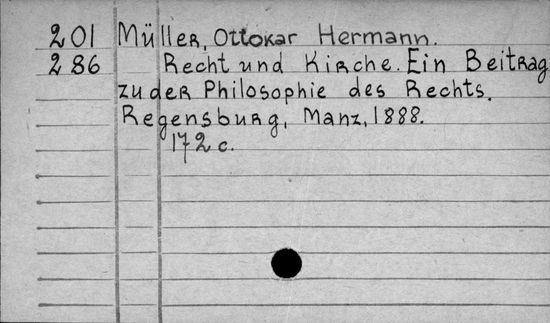 201 Müller, Ottokar Hermann.
286 Recht und Kirche. Ein Beitrag
zu der Philosophie des Rechts.
Regensburg, Manz, 1888.
172 c.